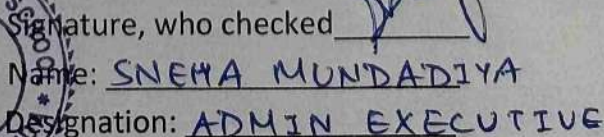 Signature, who checked
Name: SNEHA MUNDADIYA
Designation: ADMIN EXECUTIVE